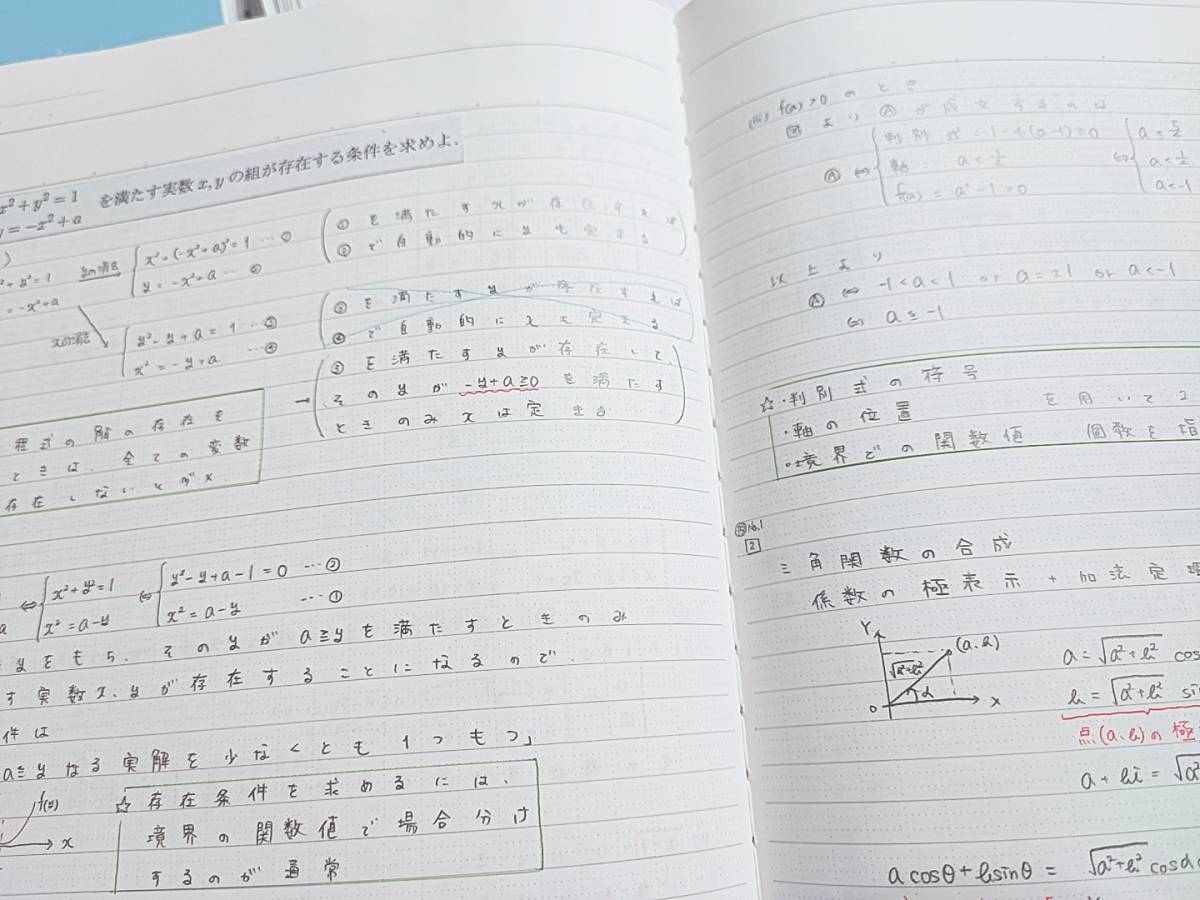 x²+y²=1
y=-x²+a
を満たす実数x,yの組が存在する条件を求めよ.
x²+y²=1
=-x²+a
yの消去
x²+(-x²+a)²=1 …①
y=-x²+a …②
(①を満たすxが存在すれば
②で自動的にyも定まる)
xの消去
y²-y+a=1 …③
x²=-y+a …④
(③を満たすyが存在すれば
④で自動的にxも定まる)
→(③を満たすyが存在して,
そのyが -y+a≧0 を満たす
ときのみxは定まる)
程式の解の存在を
ときは、全ての変数
存在しないとダメ
⇔ x²+y²=1
x²=a-y
⇔ y²-y+a-1=0 …②
x²=a-y …①
yをもち、そのyがa≧yを満たすときのみ
す実数x、yが存在することになるので.
件は
a≧yなる実解を少なくとも1つもつ」
f(y)
x
☆存在条件を求めるには、
境界の関数値で場合分け
するのが通常
(iii) f(a)>0のとき
図よりⒶが成立するのは
Ⓐ⇔
判別式:1-4(a-1)≧0
軸: a<1/2
f(a)=a²-1>0
⇔
a≦5/4
a<1/2
a<-1
以上より
Ⓐ⇔ -1<a<1 or a=±1 or a<-1
☆・判別式の符号
・軸の位置
・境界での関数値
を用いて2
個数を
No.1
2
三角関数の合成
係数の極表示+加法定理
Y
(a,b)
√a²+b²
α
O
X
a=√a²+b² cos
b=√a²+b² sin
点(a、b)の極
a+bi=√a²
a cosθ+b sinθ = √a²+b² cosα